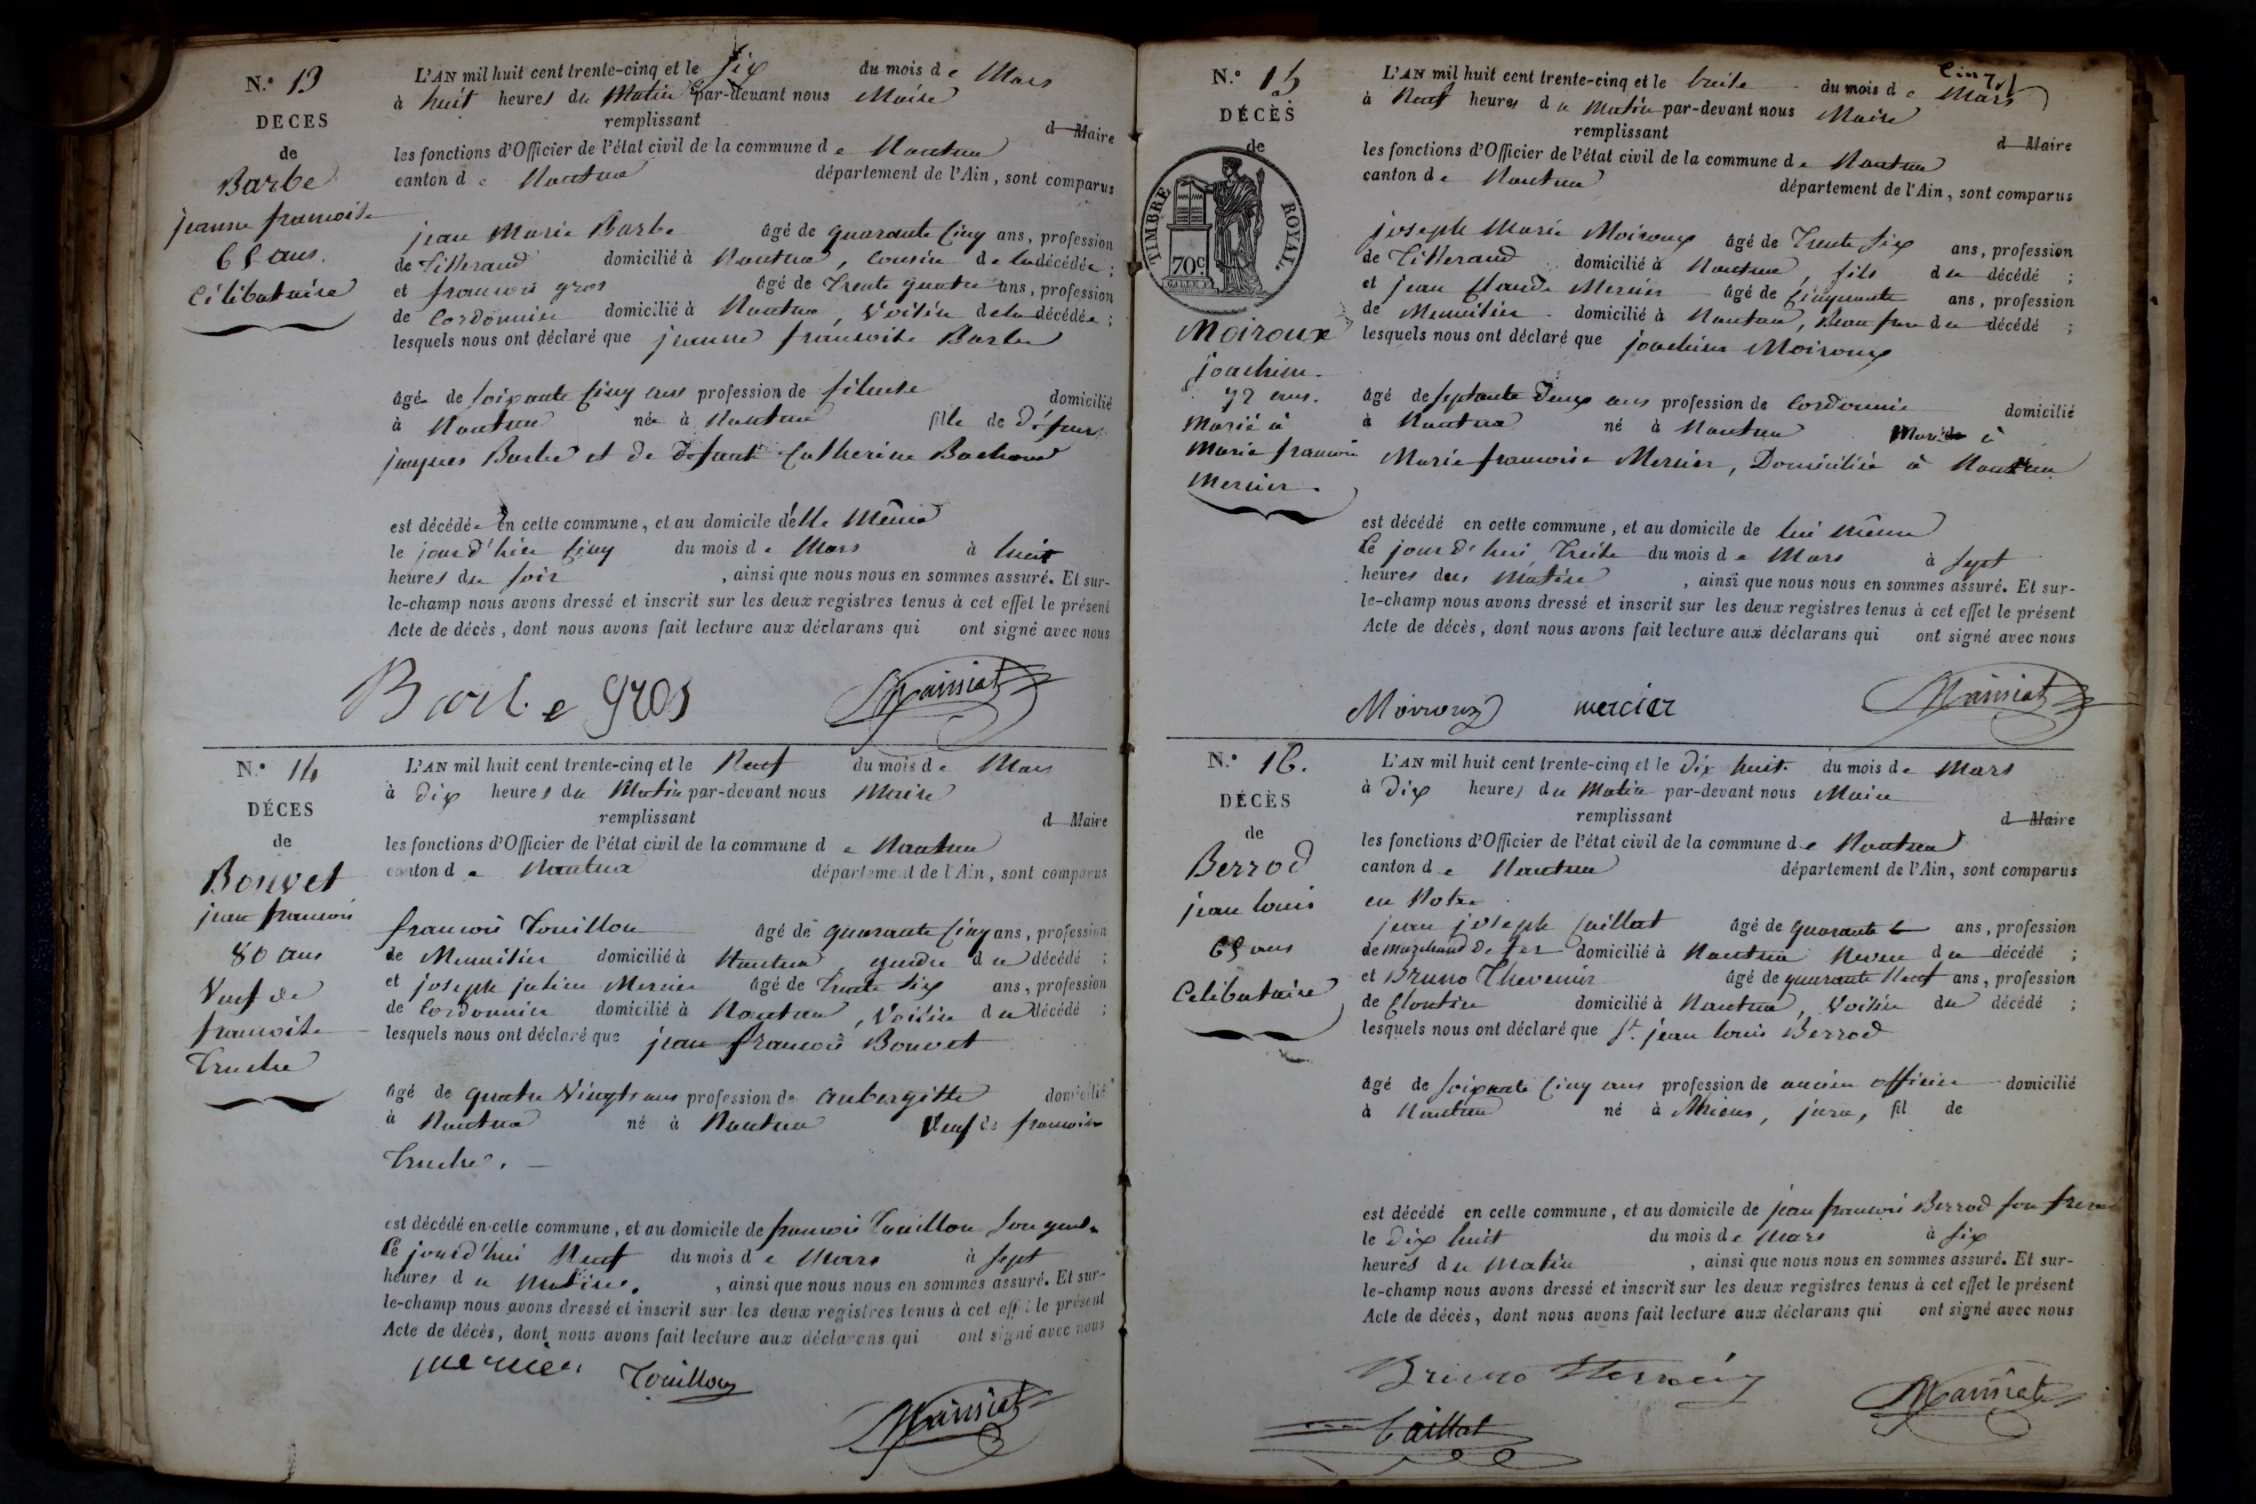 N.º 13
DÉCES
de
Barbe
jeanne francoise
65 ans.
Célibataire
L'AN mil huit cent trente-cinq et le six du mois de Mars
à huit heures du Matin par-devant nous Maire
remplissant d Maire
les fonctions d'Officier de l'état civil de la commune de Nantua
canton de Nantua département de l'Ain, sont comparus
jean Marie Barbe âgé de quarante Cinq ans, profession
de Tisserand domicilié à Nantua, Cousin de la décédée ;
et francois gros âgé de Trente quatre ans, profession
de Cordonnier domicilié à Nantua, Voisin de la décédée ;
lesquels nous ont déclaré que jeanne francoise Barbe
âgé de soixante Cinq ans profession de fileuse domicilié
à Nantua née à Nantua fille de Défunt
jaques Barbe et de Defunt Catherine
est décédée en cette commune, et au domicile d'elle Même
le jourd'hier Cinq du mois de Mars à huit
heures du soir , ainsi que nous nous en sommes assuré. Et sur-
le-champ nous avons dressé et inscrit sur les deux registres tenus à cet effet le présent
Acte de décès, dont nous avons fait lecture aux déclarans qui ont signé avec nous
Barbe gros Mainiat
N.º 14
DÉCES
de
Bonvet
jean francois
80 ans
Veuf de
francoise
Truche
L'AN mil huit cent trente-cinq et le Neuf du mois de Mars
à Dix heures du Matin par-devant nous Maire
remplissant d Maire
les fonctions d'Officier de l'état civil de la commune de Nantua
canton de Nantua département de l'Ain, sont comparus
francois Touillon âgé de quarante Cinq ans, profession
de Menuisier domicilié à Nantua, gendre du décédé ;
et joseph julien Mercier âgé de Trente six ans, profession
de Cordonnier domicilié à Nantua, Voisin du décédé ;
lesquels nous ont déclaré que jean francois Bonvet
âgé de quatre Vingts ans profession de aubergiste domicilié
à Nantua né à Nantua Veuf de francoise
Truche.
est décédé en cette commune, et au domicile de francois Touillon son gendre
Ce jourd'hui Neuf du mois de Mars à sept
heures du Matin. , ainsi que nous nous en sommes assuré. Et sur-
le-champ nous avons dressé et inscrit sur les deux registres tenus à cet effet le présent
Acte de décès, dont nous avons fait lecture aux déclarans qui ont signé avec nous
mercier Touillon
Mainiat
Cinq
N.º 15
DÉCÈS
de
TIMBRE ROYAL.
70 c.
Moiroux
joachim.
72 ans.
Marié à
Marie francoise
Mercier.
L'AN mil huit cent trente-cinq et le treize du mois de Mars
à Neuf heures du Matin par-devant nous Maire
remplissant d Maire
les fonctions d'Officier de l'état civil de la commune de Nantua
canton de Nantua département de l'Ain, sont comparus
joseph Marie Moiroux âgé de Trente six ans, profession
de Tisserand domicilié à Nantua, fils du décédé ;
et jean Claude Mercier âgé de Cinquante ans, profession
de Menuisier domicilié à Nantua, Beau frere du décédé ;
lesquels nous ont déclaré que joachim Moiroux
âgé de septante Deux ans profession de Cordonnier domicilié
à Nantua né à Nantua Marié à
Marie francoise Mercier, Domiciliée à Nantua
est décédé en cette commune, et au domicile de lui même
Ce jourd'hui Treize du mois de Mars à sept
heures du Matin , ainsi que nous nous en sommes assuré. Et sur-
le-champ nous avons dressé et inscrit sur les deux registres tenus à cet effet le présent
Acte de décès, dont nous avons fait lecture aux déclarans qui ont signé avec nous
Moiroux mercier Mainiat
N.º 16.
DÉCÈS
de
Berrod
jean louis
65 ans
Celibataire
L'AN mil huit cent trente-cinq et le Dix huit du mois de Mars
à Dix heures du Matin par-devant nous Maire
remplissant d Maire
les fonctions d'Officier de l'état civil de la commune de Nantua
canton de Nantua département de l'Ain, sont comparus
jean joseph âgé de quarante ans, profession
de Marchand de fer domicilié à Nantua Neveu du décédé ;
et Bruno Thevenin âgé de quarante Neuf ans, profession
de Cloutier domicilié à Nantua, Voisin du décédé ;
lesquels nous ont déclaré que Sr. jean louis Berrod
âgé de soixante Cinq ans profession de ancien officier domicilié
à Nantua né à , jura, fil de
est décédé en cette commune, et au domicile de jean francois Berrod son frere
le Dix huit du mois de Mars à six
heures du Matin , ainsi que nous nous en sommes assuré. Et sur-
le-champ nous avons dressé et inscrit sur les deux registres tenus à cet effet le présent
Acte de décès, dont nous avons fait lecture aux déclarans qui ont signé avec nous
Bruno
Mainiat